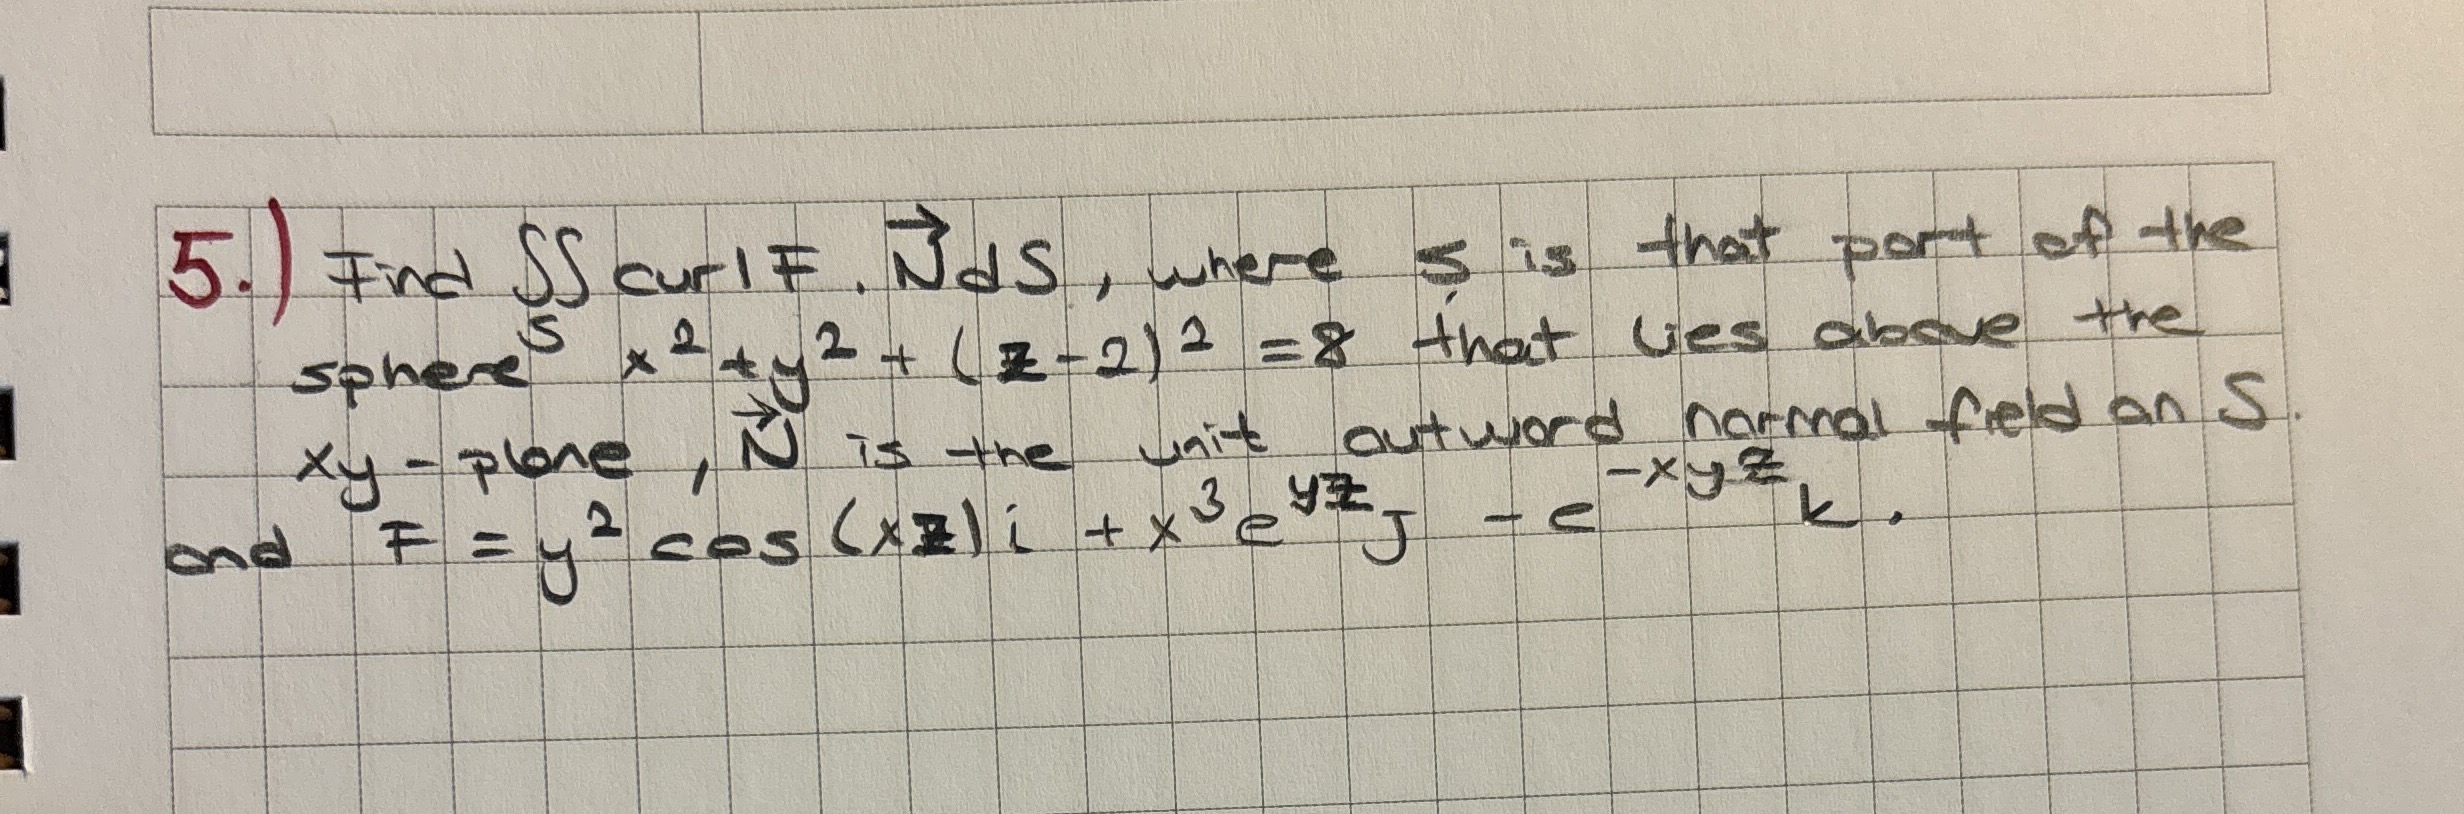 5.) Find ∬ curl F . N⃗ dS, where S is that part of the
S
sphere x² + y² + (z - 2)² = 8 that lies above the
xy - plane, N⃗ is the unit outward normal field on S.
and F = y² cos (xz) i + x³ e^{yz} j - e^{-xyz} k.